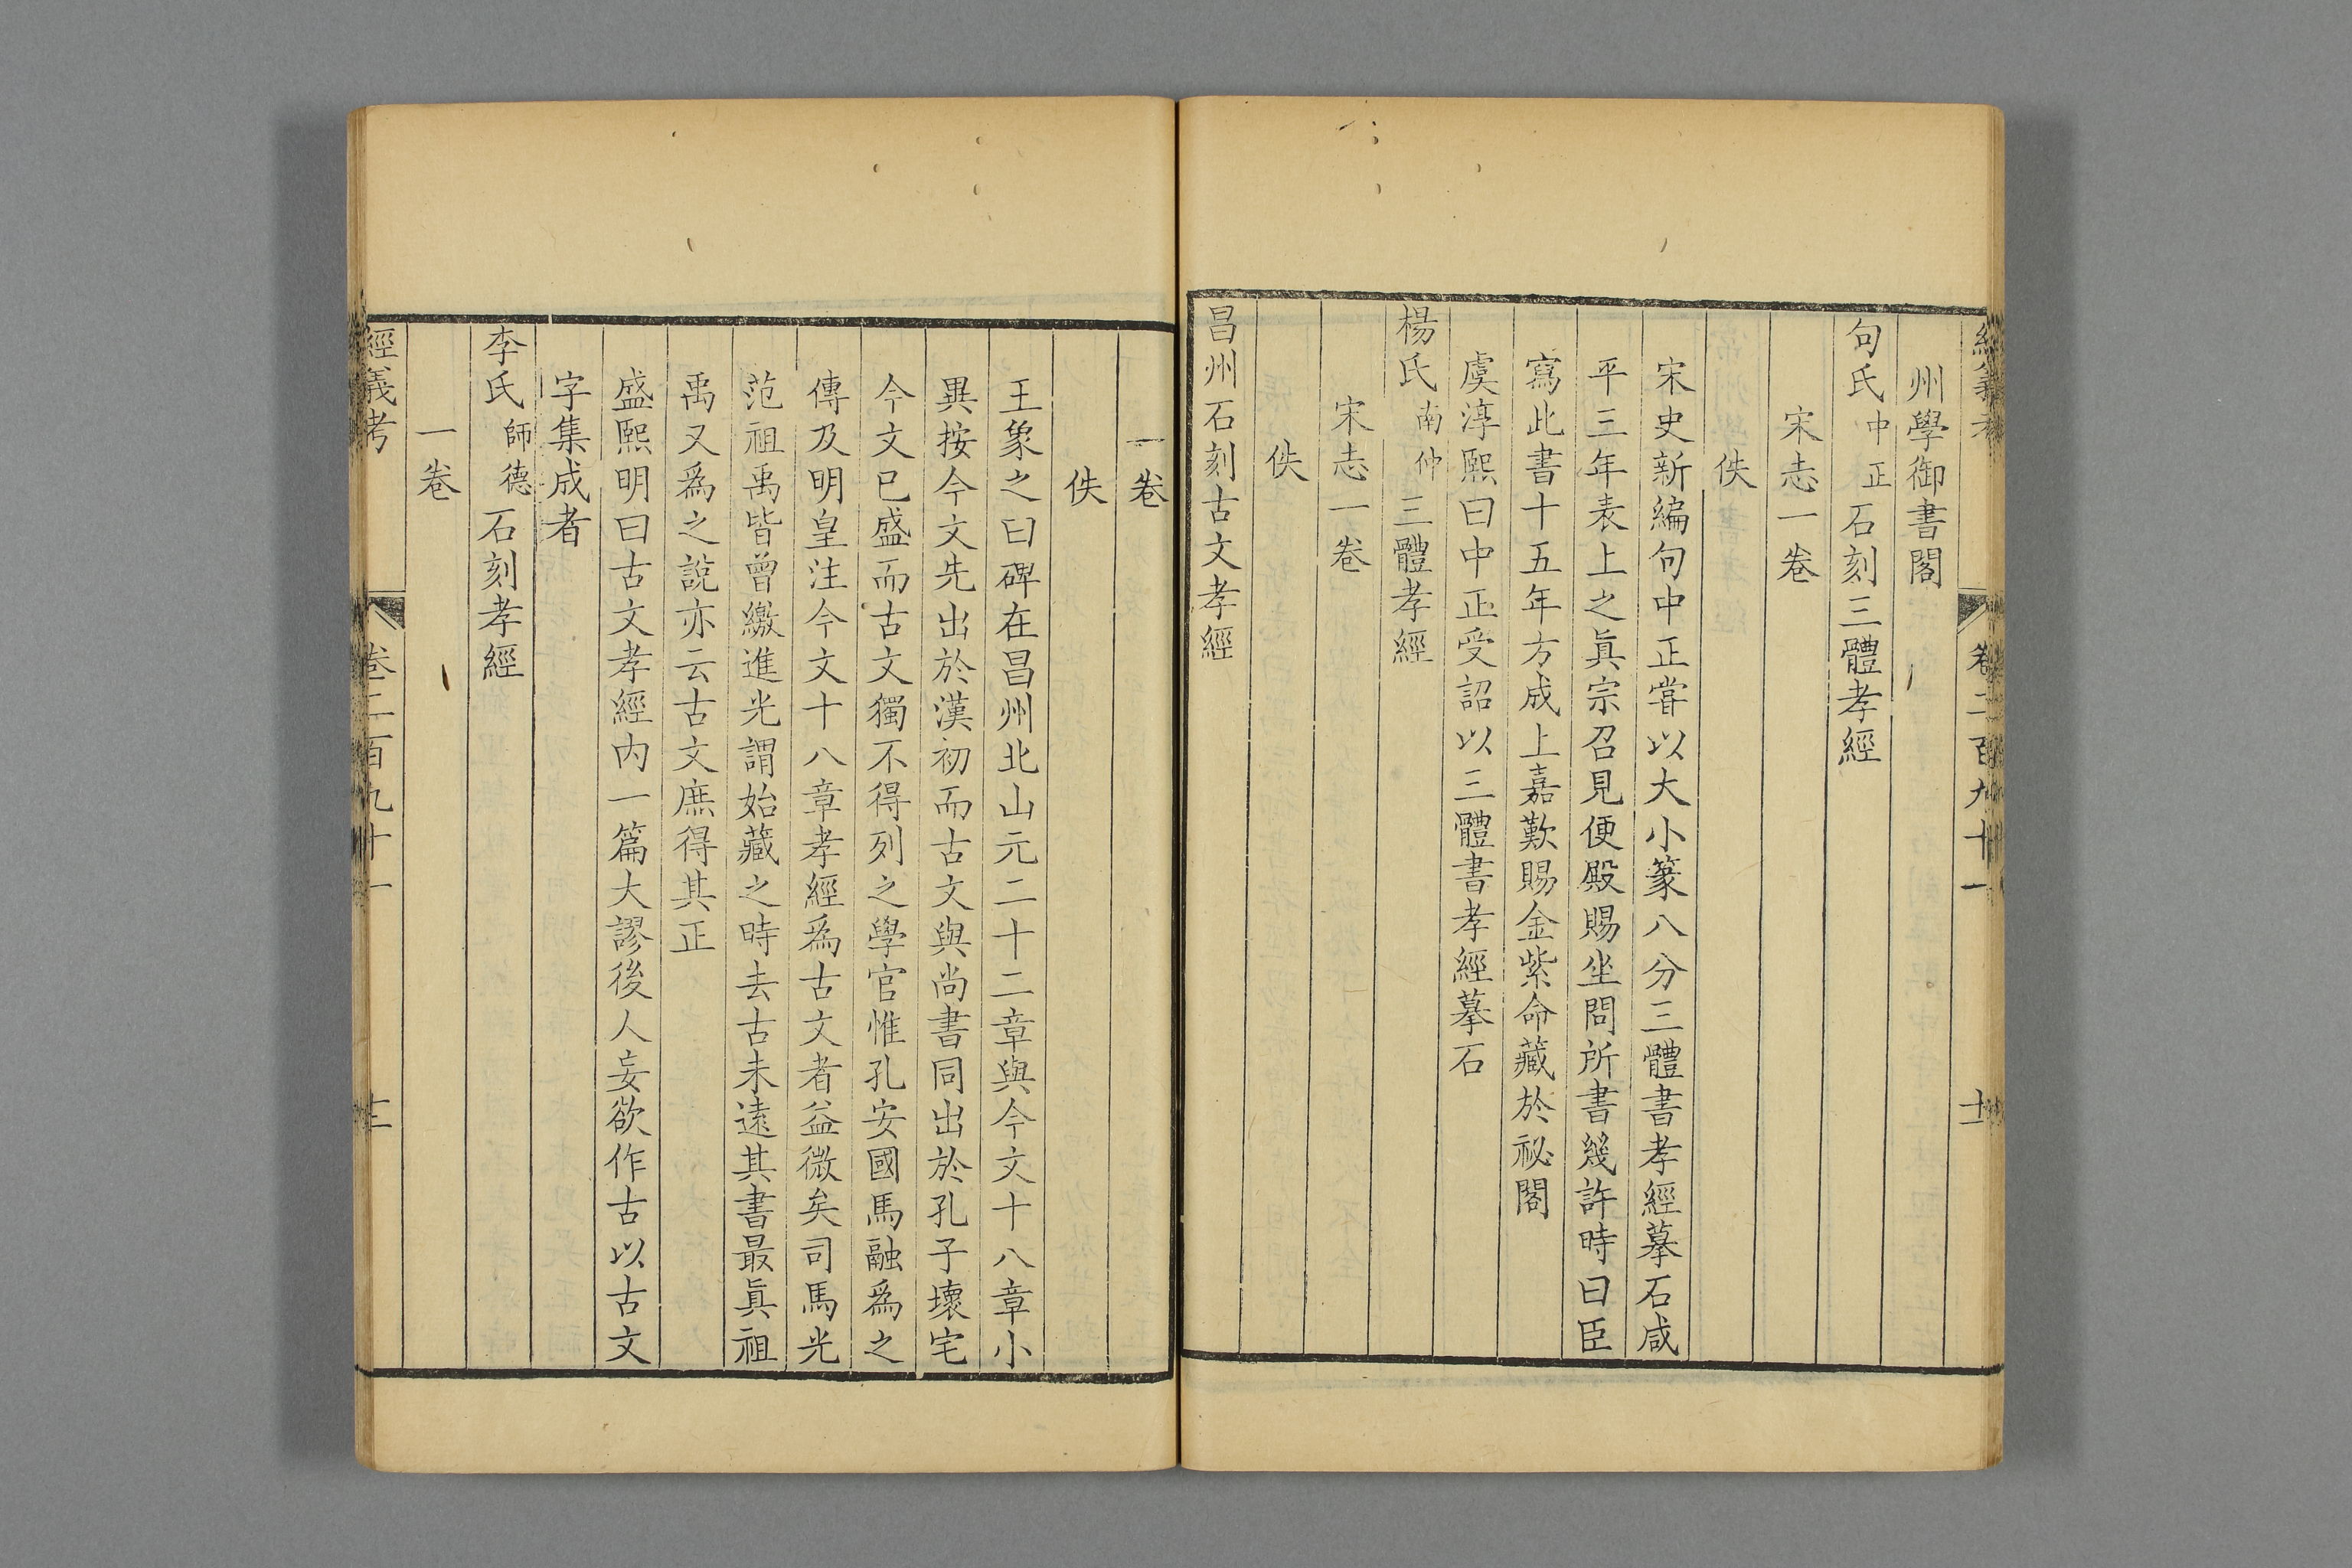 經義考
卷二百九十一
十一
州學御書閣
句氏中正石刻三體孝經
宋志一卷
佚
宋史新編句中正嘗以大小篆八分三體書孝經摹石咸
平三年表上之眞宗召見便殿賜坐問所書幾許時曰臣
寫此書十五年方成上嘉歎賜金紫命藏於祕閣
虞淳熙曰中正受詔以三體書孝經摹石
楊氏南仲三體孝經
宋志一卷
佚
昌州石刻古文孝經
一卷
佚
王象之曰碑在昌州北山元二十二章與今文十八章小
異按今文先出於漢初而古文與尚書同出於孔子壞宅
今文已盛而古文獨不得列之學官惟孔安國馬融爲之
傳及明皇注今文十八章孝經爲古文者益微矣司馬光
范祖禹皆曾繳進光謂始藏之時去古未遠其書最眞祖
禹又爲之說亦云古文庶得其正
盛熙明曰古文孝經內一篇大謬後人妄欲作古以古文
字集成者
李氏師德石刻孝經
一卷
經義考
卷二百九十一